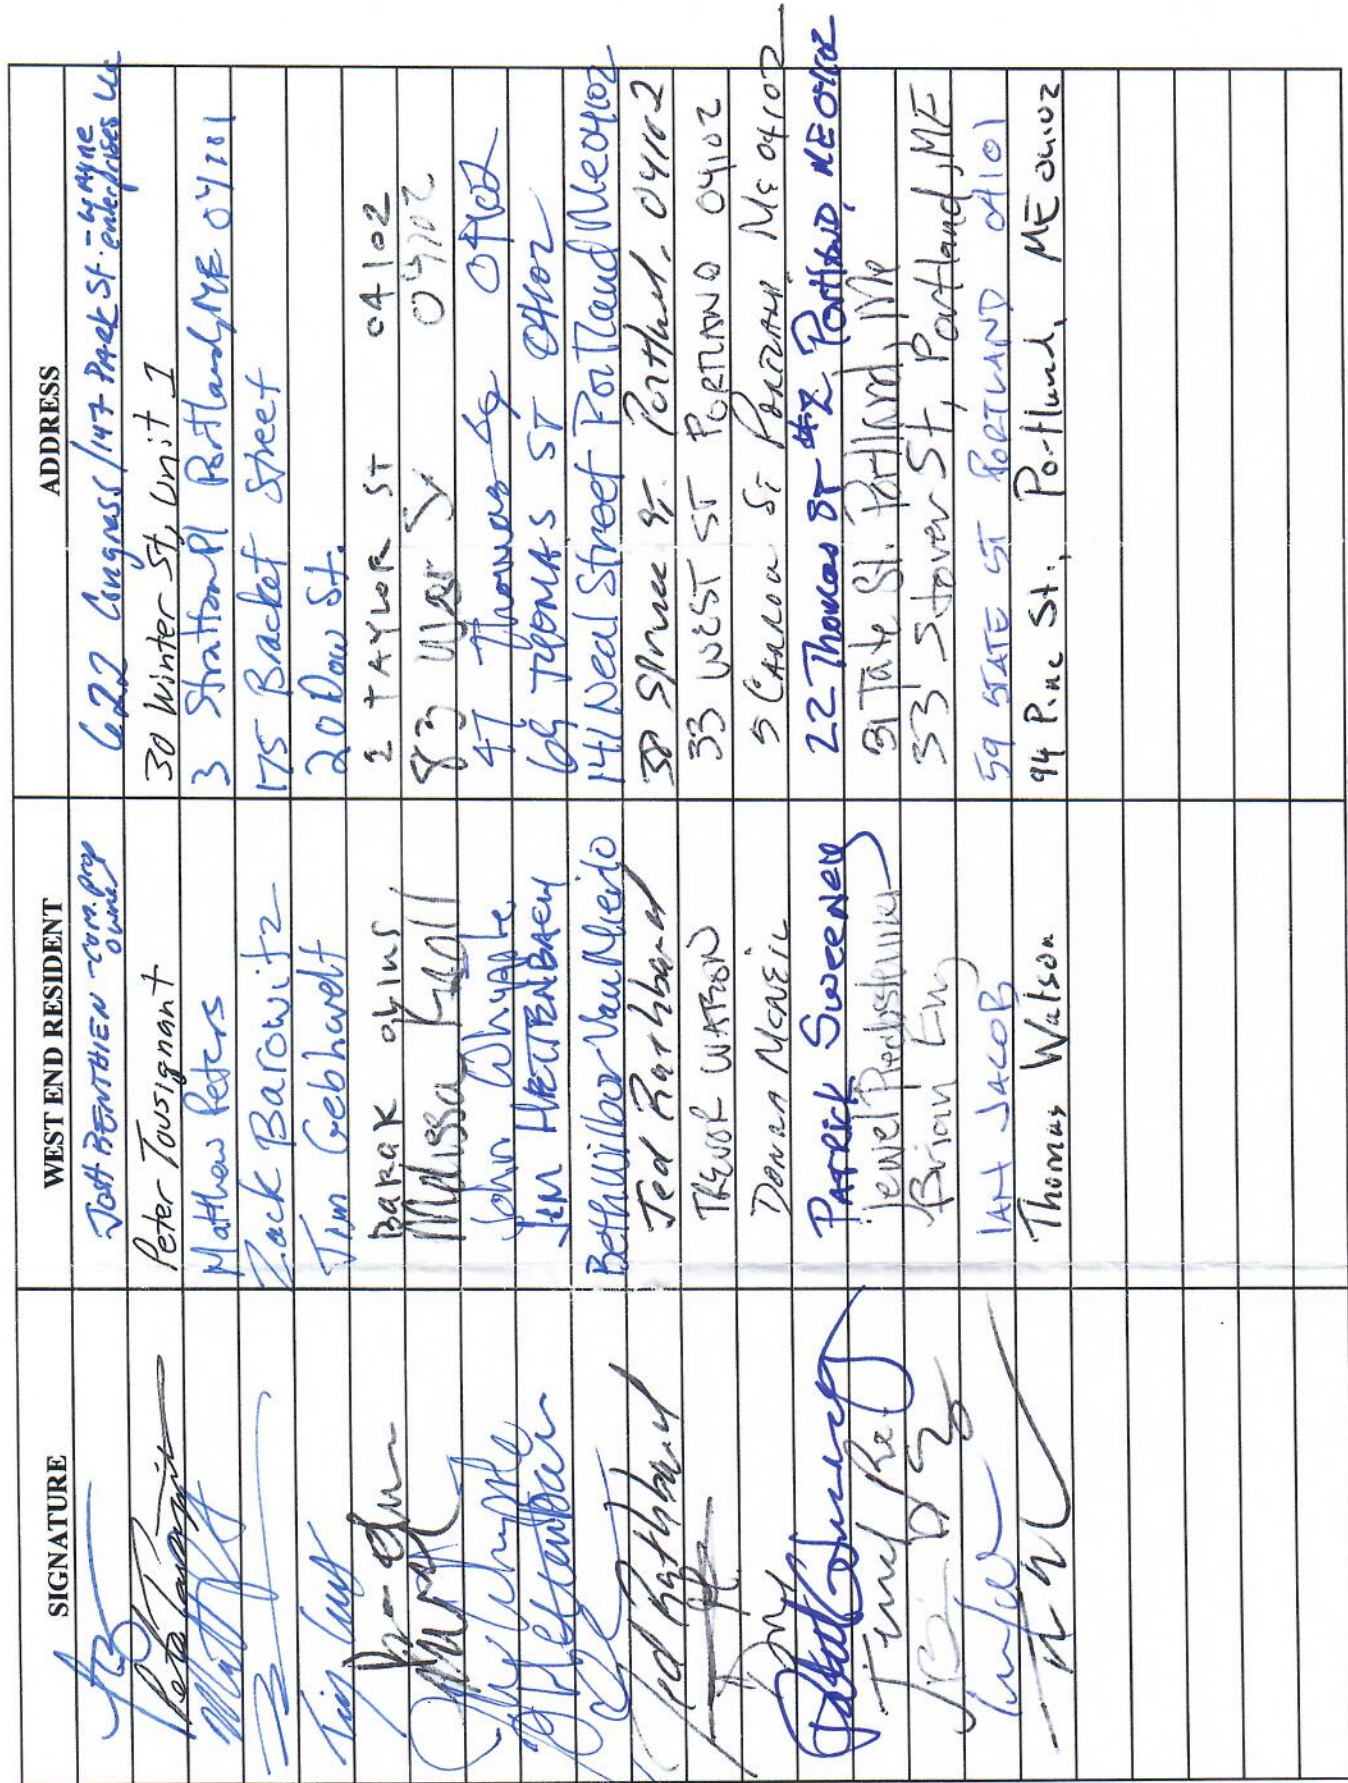 SIGNATURE WEST END RESIDENT ADDRESS
JOSH BENTHIEN - com. prop owner 622 Congress / 147 PARK St. - WAYNE enterprises LLC
Peter Tousignant Peter Tousignant 30 Winter St, Unit 1
Matthew Peters 3 Stratton Pl Portland, ME 04101
Zack Barowitz 175 Bracket Street
Tim Gebhardt 20 Dow St.
BARAK Olins 1 TAYLOR ST 04102
Melissa 83 St 04102
John Whipple 47 Thomas St 04102
JEM HETTENBACH 69 THOMAS ST 04102
Beth Wilbor Van Mierlo 141 Neal Street Portland Me 04102
Ted Rathband Ted Rathband 38 Spruce St. Portland. 04102
TREVOR WATSON 33 WEST ST PORTLAND 04102
DONNA MCNEIL 5 CARROLL ST PORTLAND ME 04102
PATRICK SWEENEY 22 Thomas ST #2 Portland, ME 04102
Jewel 31 Tate St. Portland, Me
Brian Eng 33 Stover St, Portland, ME
IAN JACOB 59 STATE ST PORTLAND 04101
Thomas Watson 94 Pine St., Portland, ME 04102